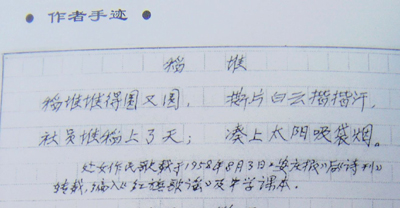 ● 作者手迹 ●
稻 堆
稻堆堆得圆又圆, 撕片白云揩揩汗,
社员堆稻上了天; 凑上太阳吸袋烟。
处女作民歌载于1958年8月3日《安庆报》后《诗刊》
转载,编入《红旗歌谣》及中学课本.